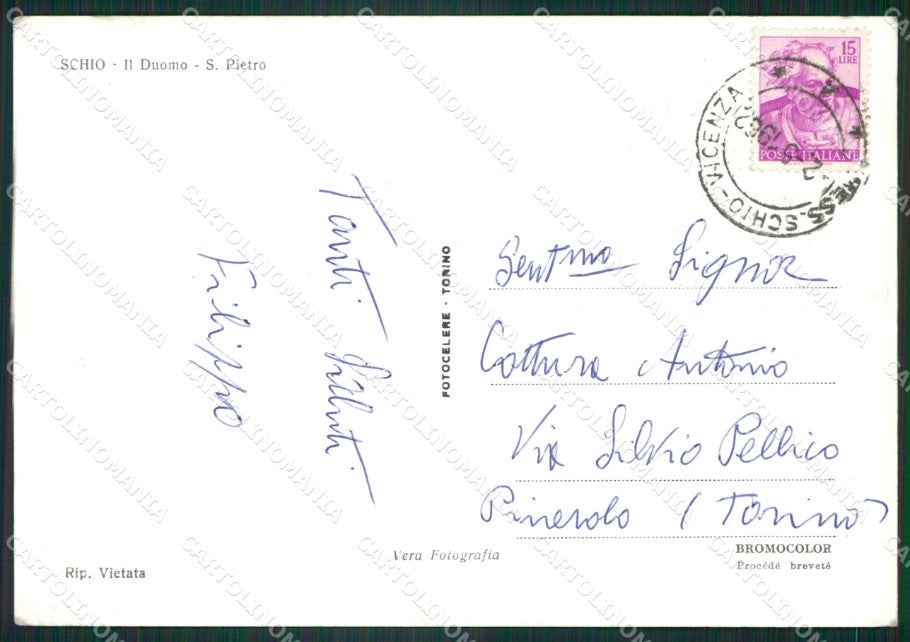 SCHIO - Il Duomo - S. Pietro
15
LIRE
POSTE ITALIANE
SCHIO - VICENZA
Tanti Saluti
Filippo
FOTOCELERE - TORINO
Gentmo Signor
Cottura Antonio
Via Silvio Pellico
Pinerolo (Torino)
Vera Fotografia
BROMOCOLOR
Procédé breveté
Rip. Vietata
CARTOLINOMANIA